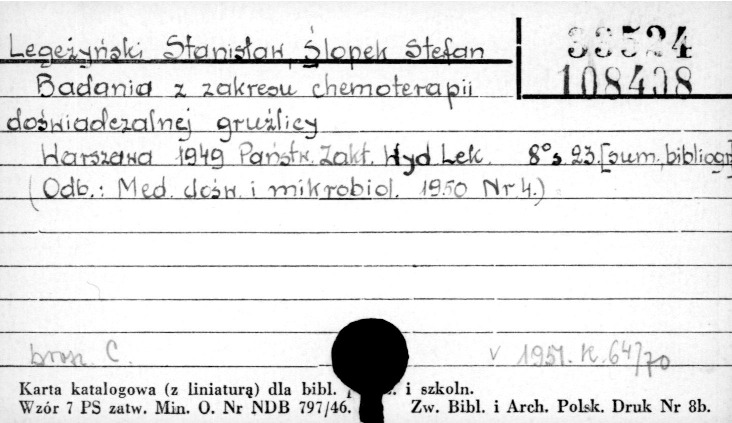 Legeżyński Stanisław, Ślopek Stefan
33524
108408
Badania z zakresu chemoterapii
doświadczalnej gruźlicy
Warszawa 1949 Państw. Zakł. Wyd. Lek. 8° s. 23. [sum., bibliogr
(Odb.: Med. dośw. i mikrobiol. 1950 Nr 4.)
brosz. C. v 1951. K. 64/70
Karta katalogowa (z liniaturą) dla bibl. i szkoln.
Wzór 7 PS zatw. Min. O. Nr NDB 797/46. Zw. Bibl. i Arch. Polsk. Druk Nr 8b.